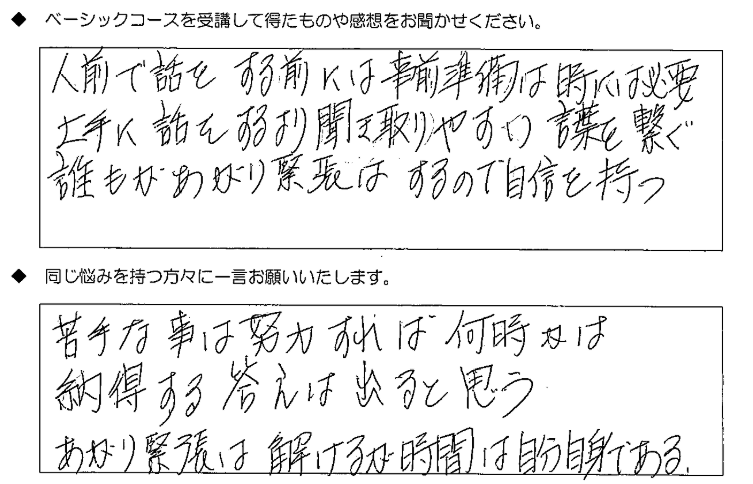 ◆ ベーシックコースを受講して得たものや感想をお聞かせください。
人前で話を する前には事前準備は時には必要
上手に 話をするより聞き取りやすい 言葉を 繋ぐ
誰もがあがり緊張は するので自信を 持つ
◆ 同じ悩みを持つ方々に一言お願いいたします。
苦手な 事は努力すれば 何時かは
納得する 答えは 出ると 思う
あがり緊張は 解けるが時間は自分自身である.